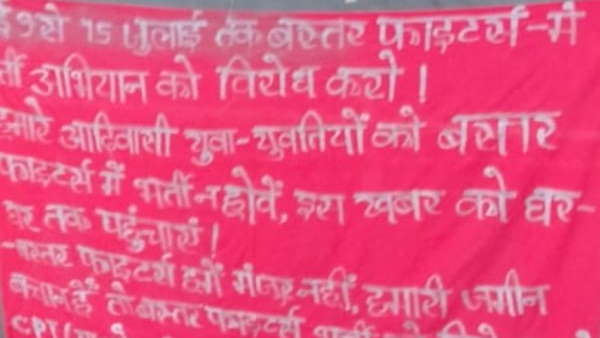 9 से 15 जुलाई तक बस्तर फाइटर्स-मे
र्ती अभियान को विरोध करो !
हमारे आदिवासी युवा-युवतियों को बस्तर
फाइटर्स में भर्ती न होवें, इस खबर को घर-
घर तक पहुंचाएं !
-बस्तर फाइटर्स हमें मंजूर नहीं, हमारी जमीन
बचाना है तो बस्तर फाइटर्स भर्ती
CPI